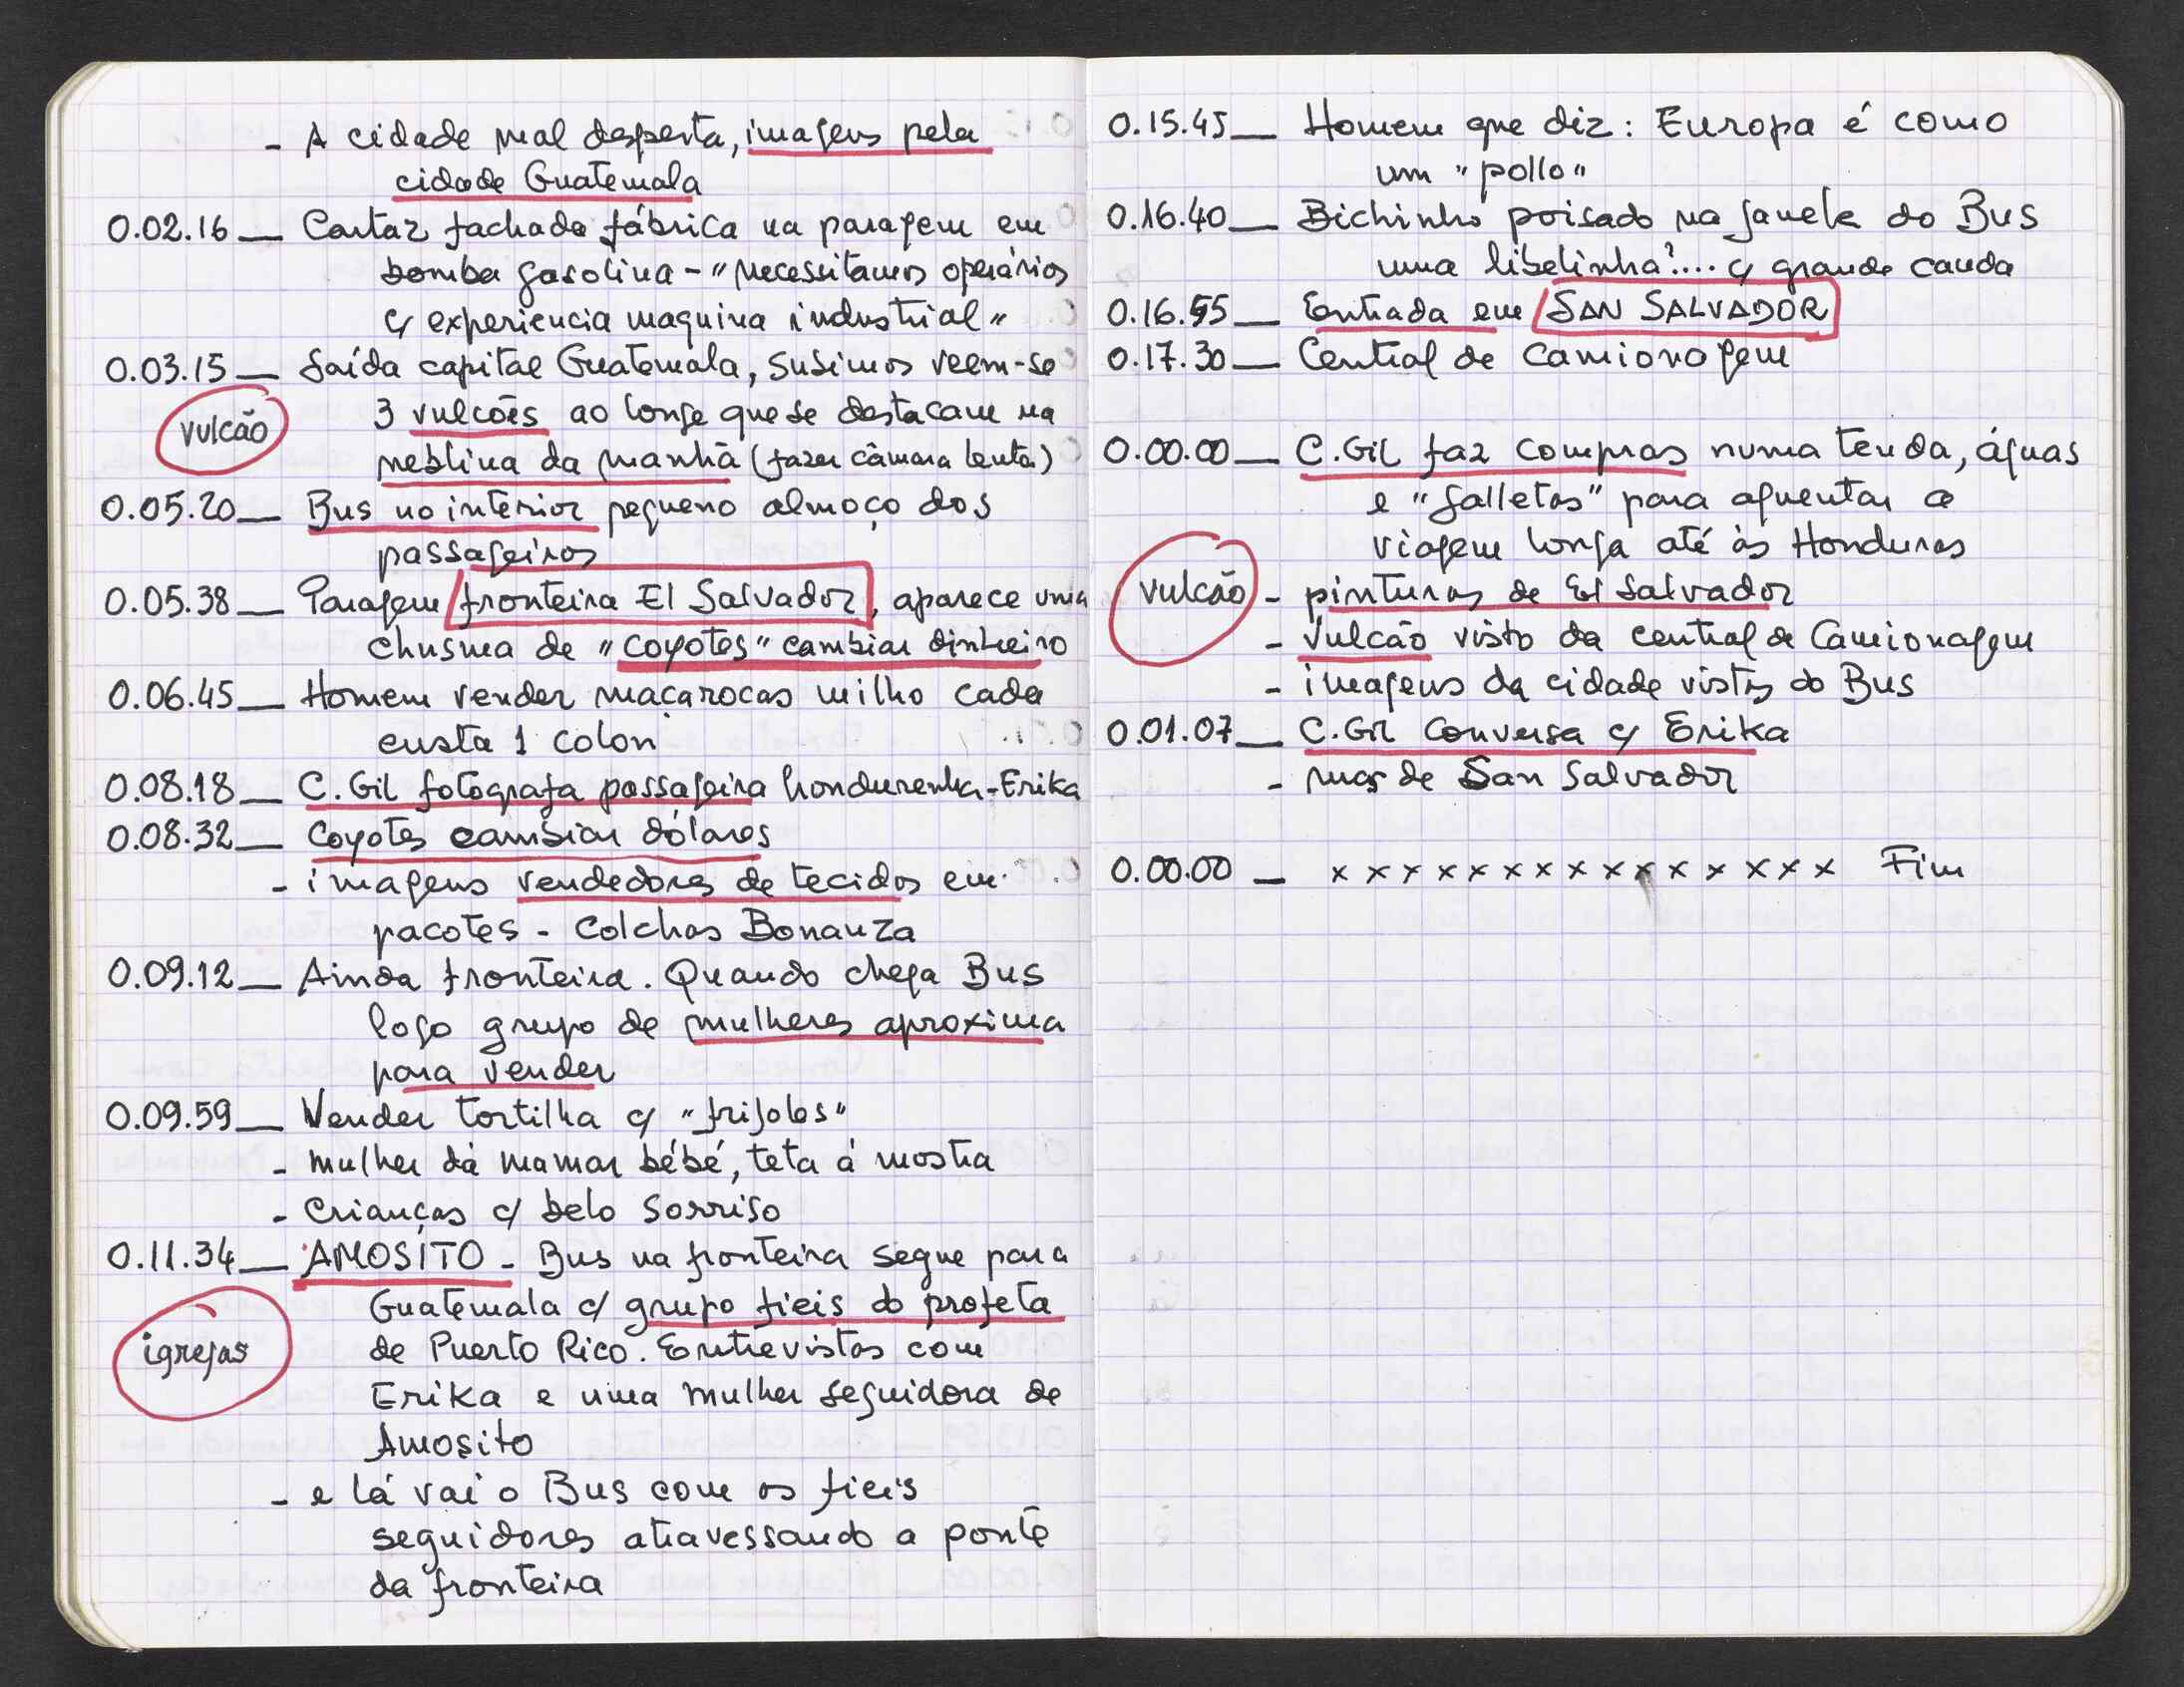 - A cidade mal desperta, imagens pela
cidade Guatemala
0.02.16 — Cartaz fachada fábrica na paragem em
bomba gasolina - "necessitamos operários
c/ experiencia maquina industrial"
0.03.15 — Saída capital Guatemala, subimos veem-se
vulcão
3 vulcões ao longe que se destacam na
neblina da manhã (fazer câmara lenta)
0.05.20 — Bus no interior pequeno almoço dos
passageiros
0.05.38 — Paragem fronteira El Salvador, aparece uma
chusma de "coyotes" cambiar dinheiro
0.06.45 — Homem vender maçarocas milho cada
custa 1 colon
0.08.18 — C. Gil fotografa passageira hondurenha - Erika
0.08.32 — Coyotes cambiar dólares
- imagens vendedores de tecidos em
pacotes - Colchas Bonanza
0.09.12 — Ainda fronteira. Quando chega Bus
logo grupo de mulheres aproxima
para vender
0.09.59 — Vender tortilha c/ "frijoles"
- mulher dá mamar bébé, teta á mostra
- Crianças c/ belo sorriso
0.11.34 — AMOSÍTO - Bus na fronteira segue para
Guatemala c/ grupo fieis do profeta
igrejas
de Puerto Rico. Entrevistas com
Erika e uma mulher seguidora de
Amosito
- e lá vai o Bus com os fieis
seguidores atravessando a ponte
da fronteira
0.15.45 — Homem que diz: Europa é como
um "pollo"
0.16.40 — Bichinho poisado na janela do Bus
uma libelinha?.... c/ grande cauda
0.16.55 — Entrada em SAN SALVADOR
0.17.30 — Central de Camionagem
0.00.00 — C. Gil faz compras numa tenda, águas
e "galletas" para aguentar a
viagem longa até ás Honduras
vulcão
- pinturas de El Salvador
- Vulcão visto da central de Camionagem
- imagens da cidade vistas do Bus
0.01.07 — C. Gil Conversa c/ Erika
- ruas de San Salvador
0.00.00 — x x x x x x x x x x x x x x x Fim